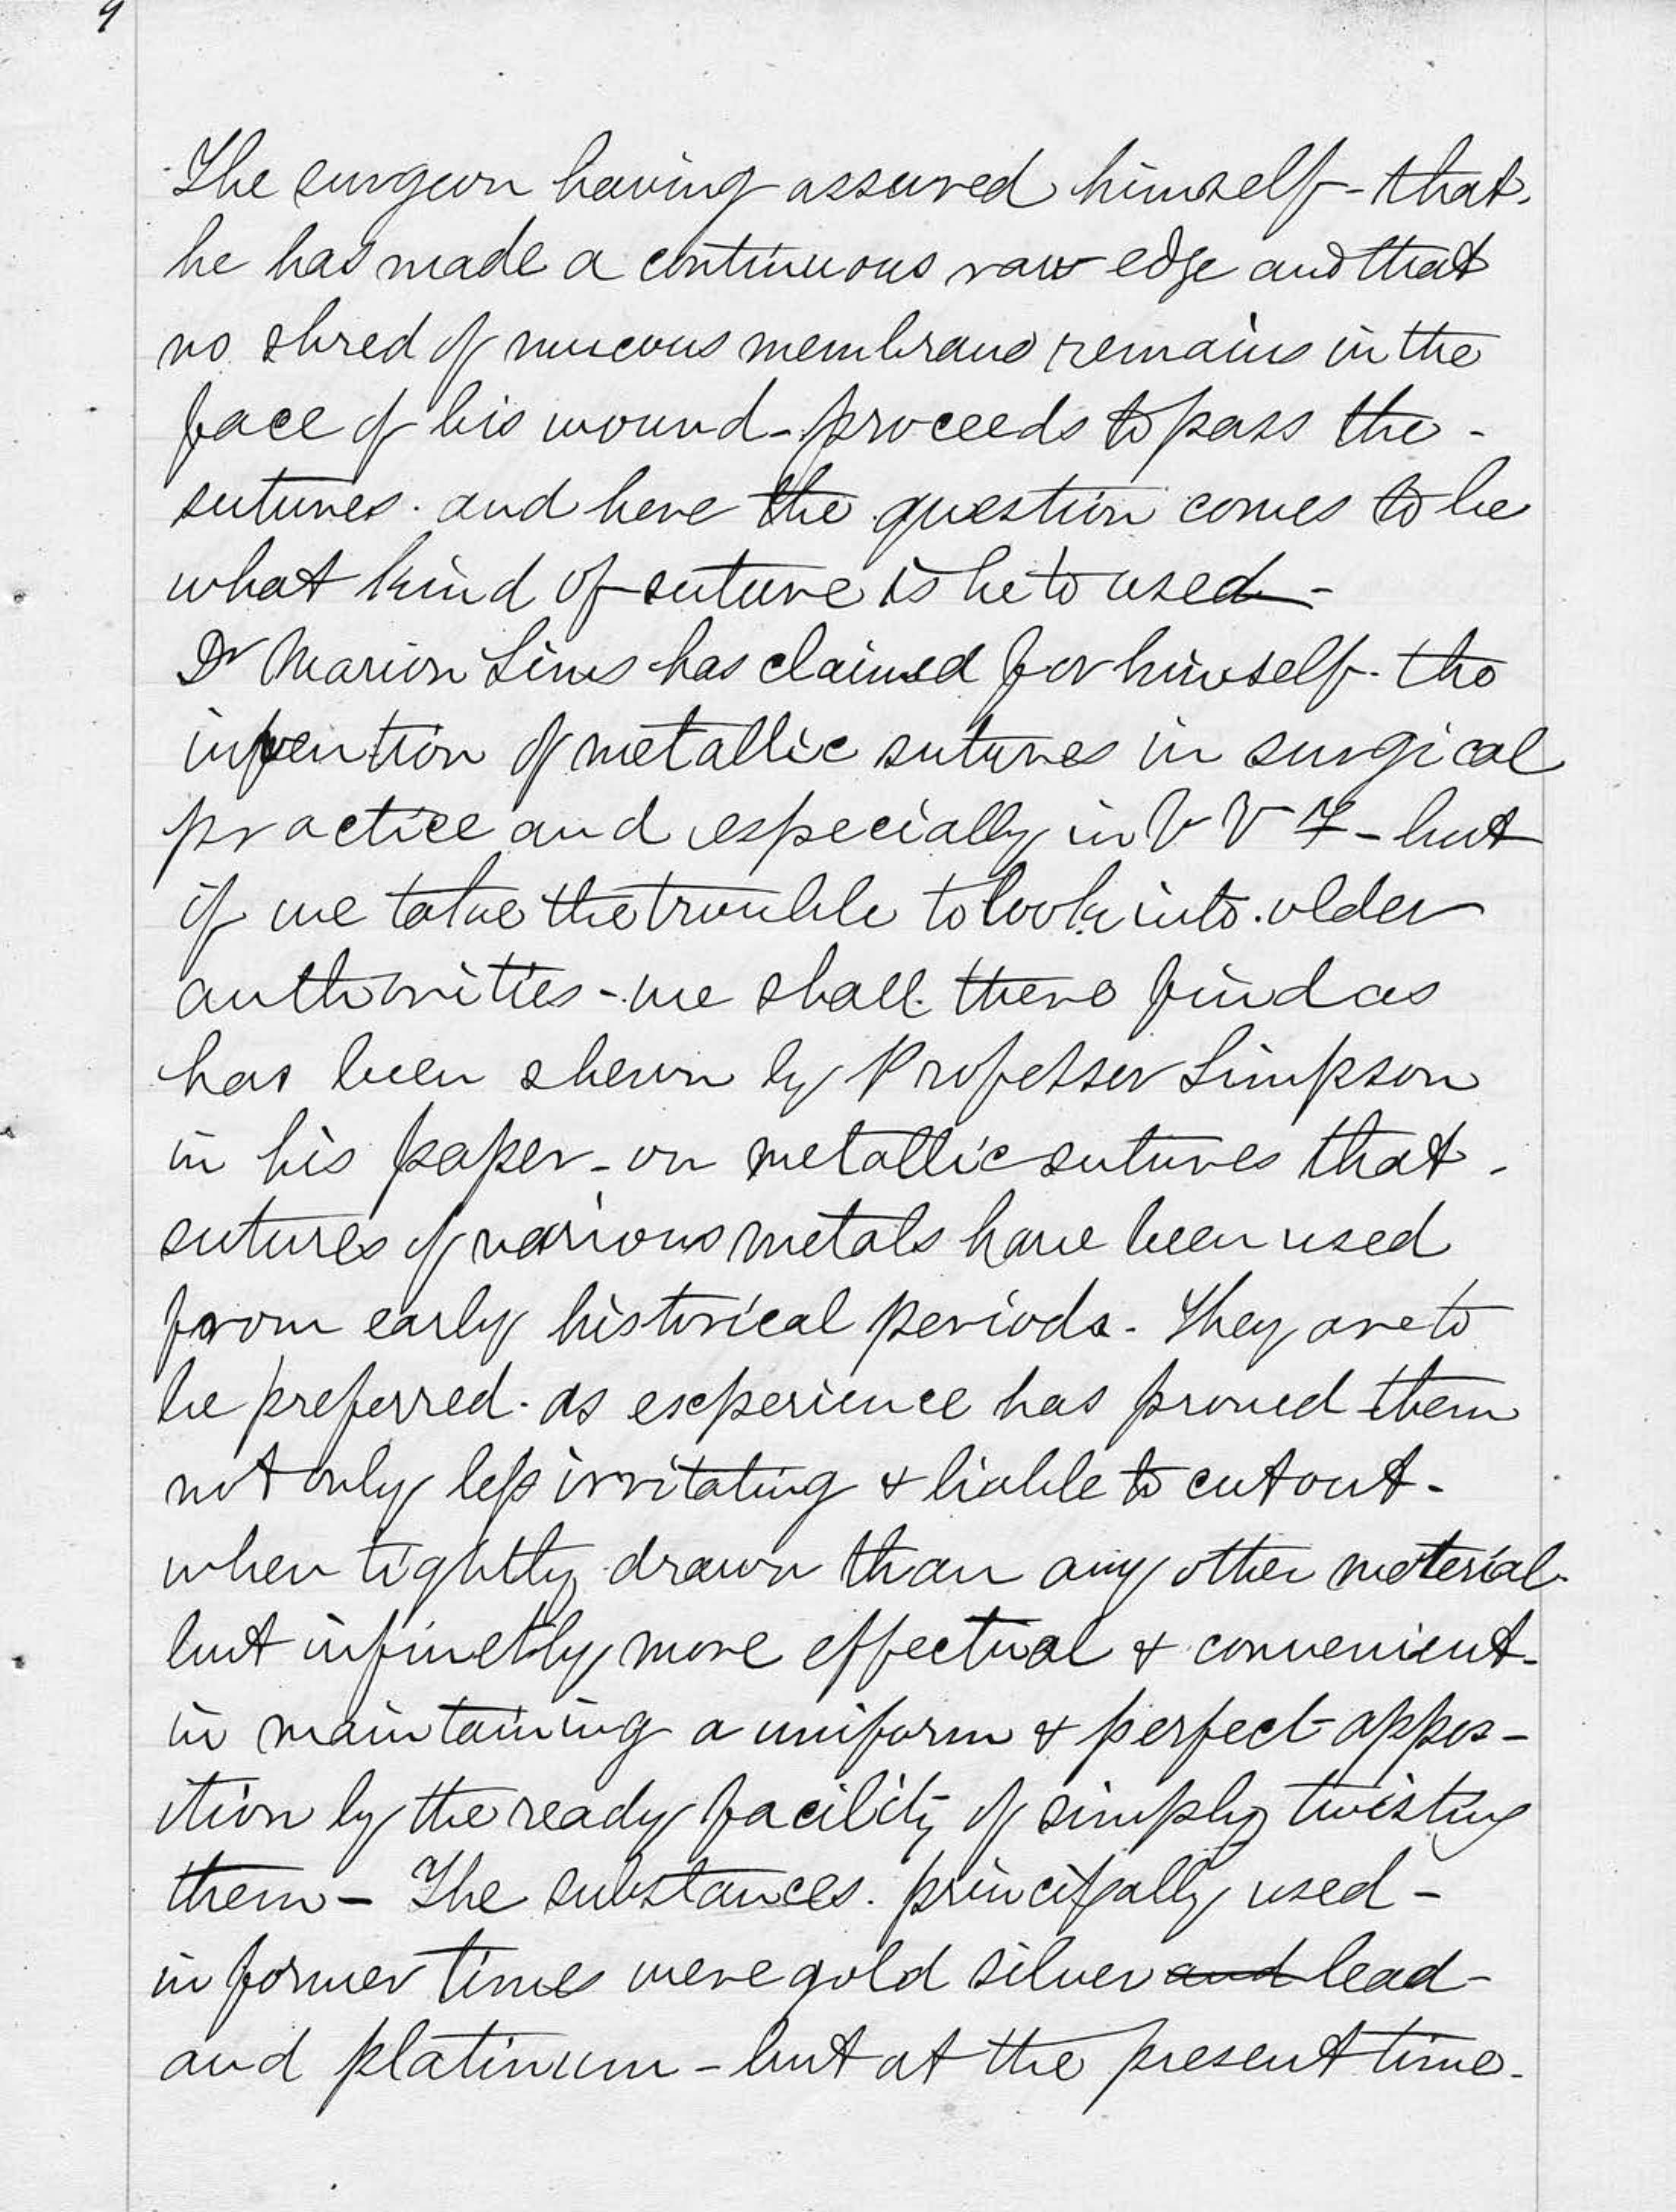 9
The surgeon having assured himself - that
he has made a continuous raw edge and that
no shred of mucous membrane remains in the
face of his wound - proceeds to pass the -
sutures. and here the question comes to be
what kind of suture is he to used -
Dr Marion Sims has claimed for himself. the
invention of metallic sutures in surgical
practice and especially in V V F - but
if we take the trouble to look into older
authorities - we shall there find as
has been shewn by Professor Simpson
in his paper - on metallic sutures that -
sutures of various metals have been used
from early historical periods. They are to
be preferred. as experience has proved them
not only less irritating & liable to cut out -
when tightly drawn than any other material.
but infinetly more effectual & convenient -
in maintaining a uniform & perfect appos-
ition by the ready facility of simply twisting
them - The substances. principally used -
in former times were gold silver and lead -
and platinum - but at the present time -